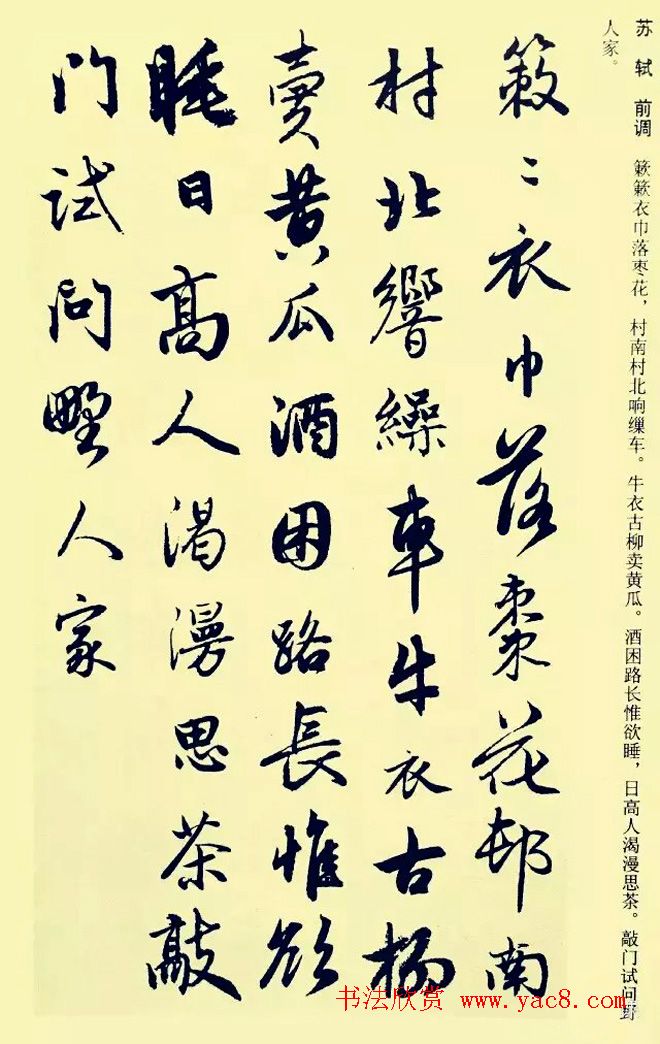 苏轼 前调 簌簌衣巾落枣花，村南村北响缫车。牛衣古柳卖黄瓜。酒困路长惟欲睡，日高人渴漫思茶。敲门试问野
人家。
簌〻衣巾落棗花邨南
村北響繰車牛衣古楊
賣黄瓜酒困路長惟欲
睡日髙人渴漫思茶敲
门試问野人家
书法欣赏 www.yac8.com